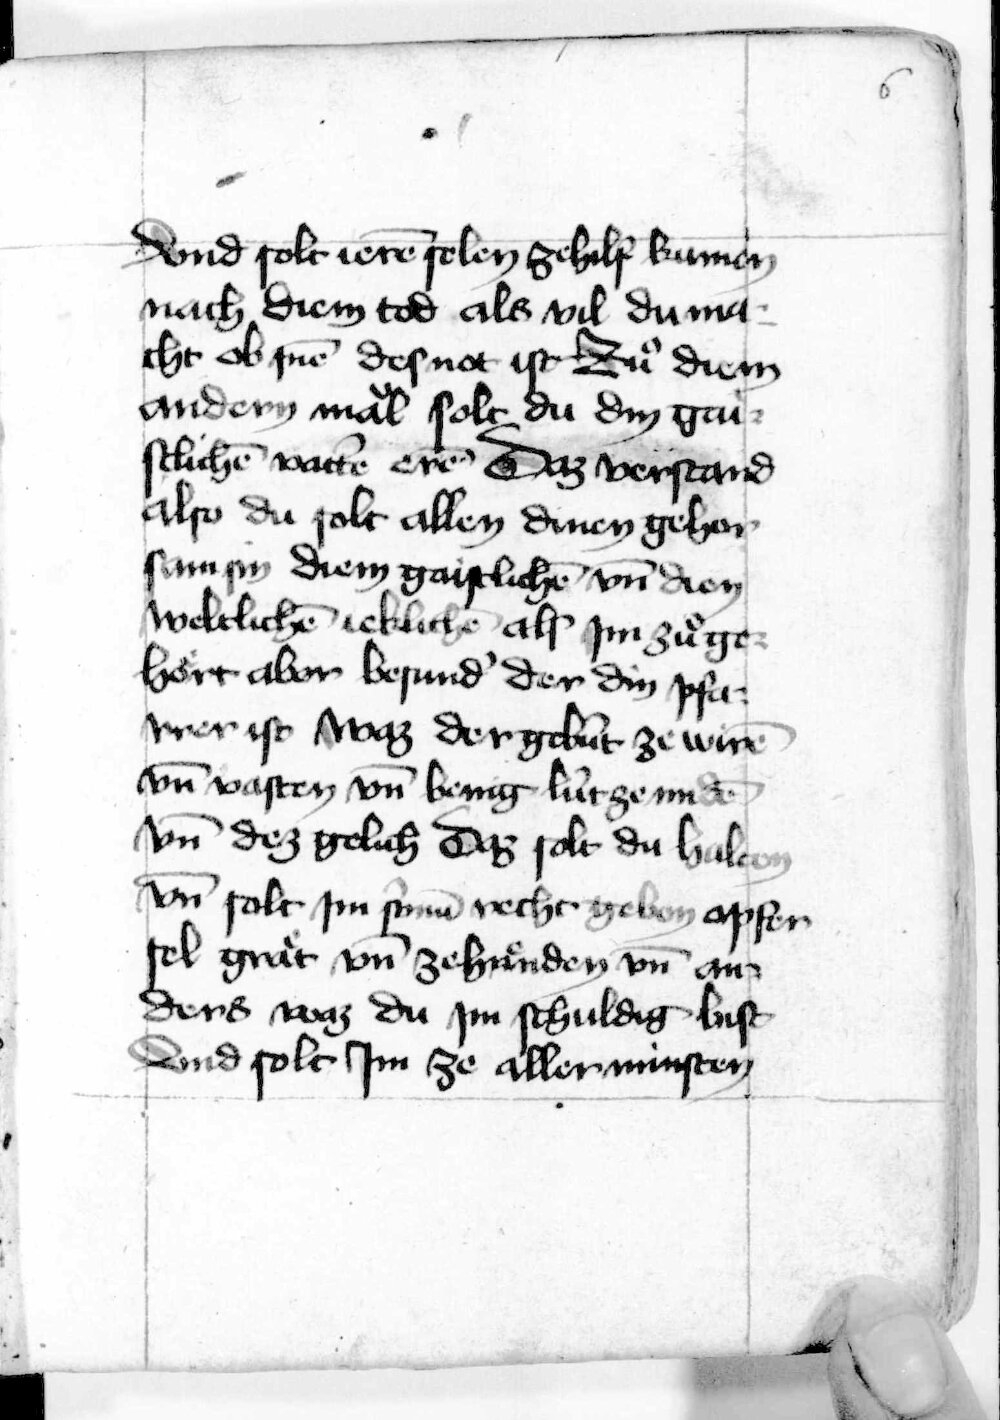 6
Vnd solt ierē selen zehilf kumen
nach diem tod als vil du ma-
cht ob jnē des not ist Zuͦ diem
andern mal solt du din gai-
stlichē vattē erē Daz verstand
also du solt allen dinen gehor
sam sin diem gaistlichē vn̄ dien
weltlichē ieklichē als jm zuͦge-
hoͤrt aber besund' der din pfa-
rrer ist Waz der gebu̍t ze wirē
vn̄ vasten vn̄ benig lu̍t ze midē
vn̄ dez gelich Daz solt du halten
vn̄ solt jm recht geben opfer
sel graͤt vn̄ zehaͤnden vn̄ an-
ders waz du jm schuldig bist
Vnd solt Jm ze aller minsten